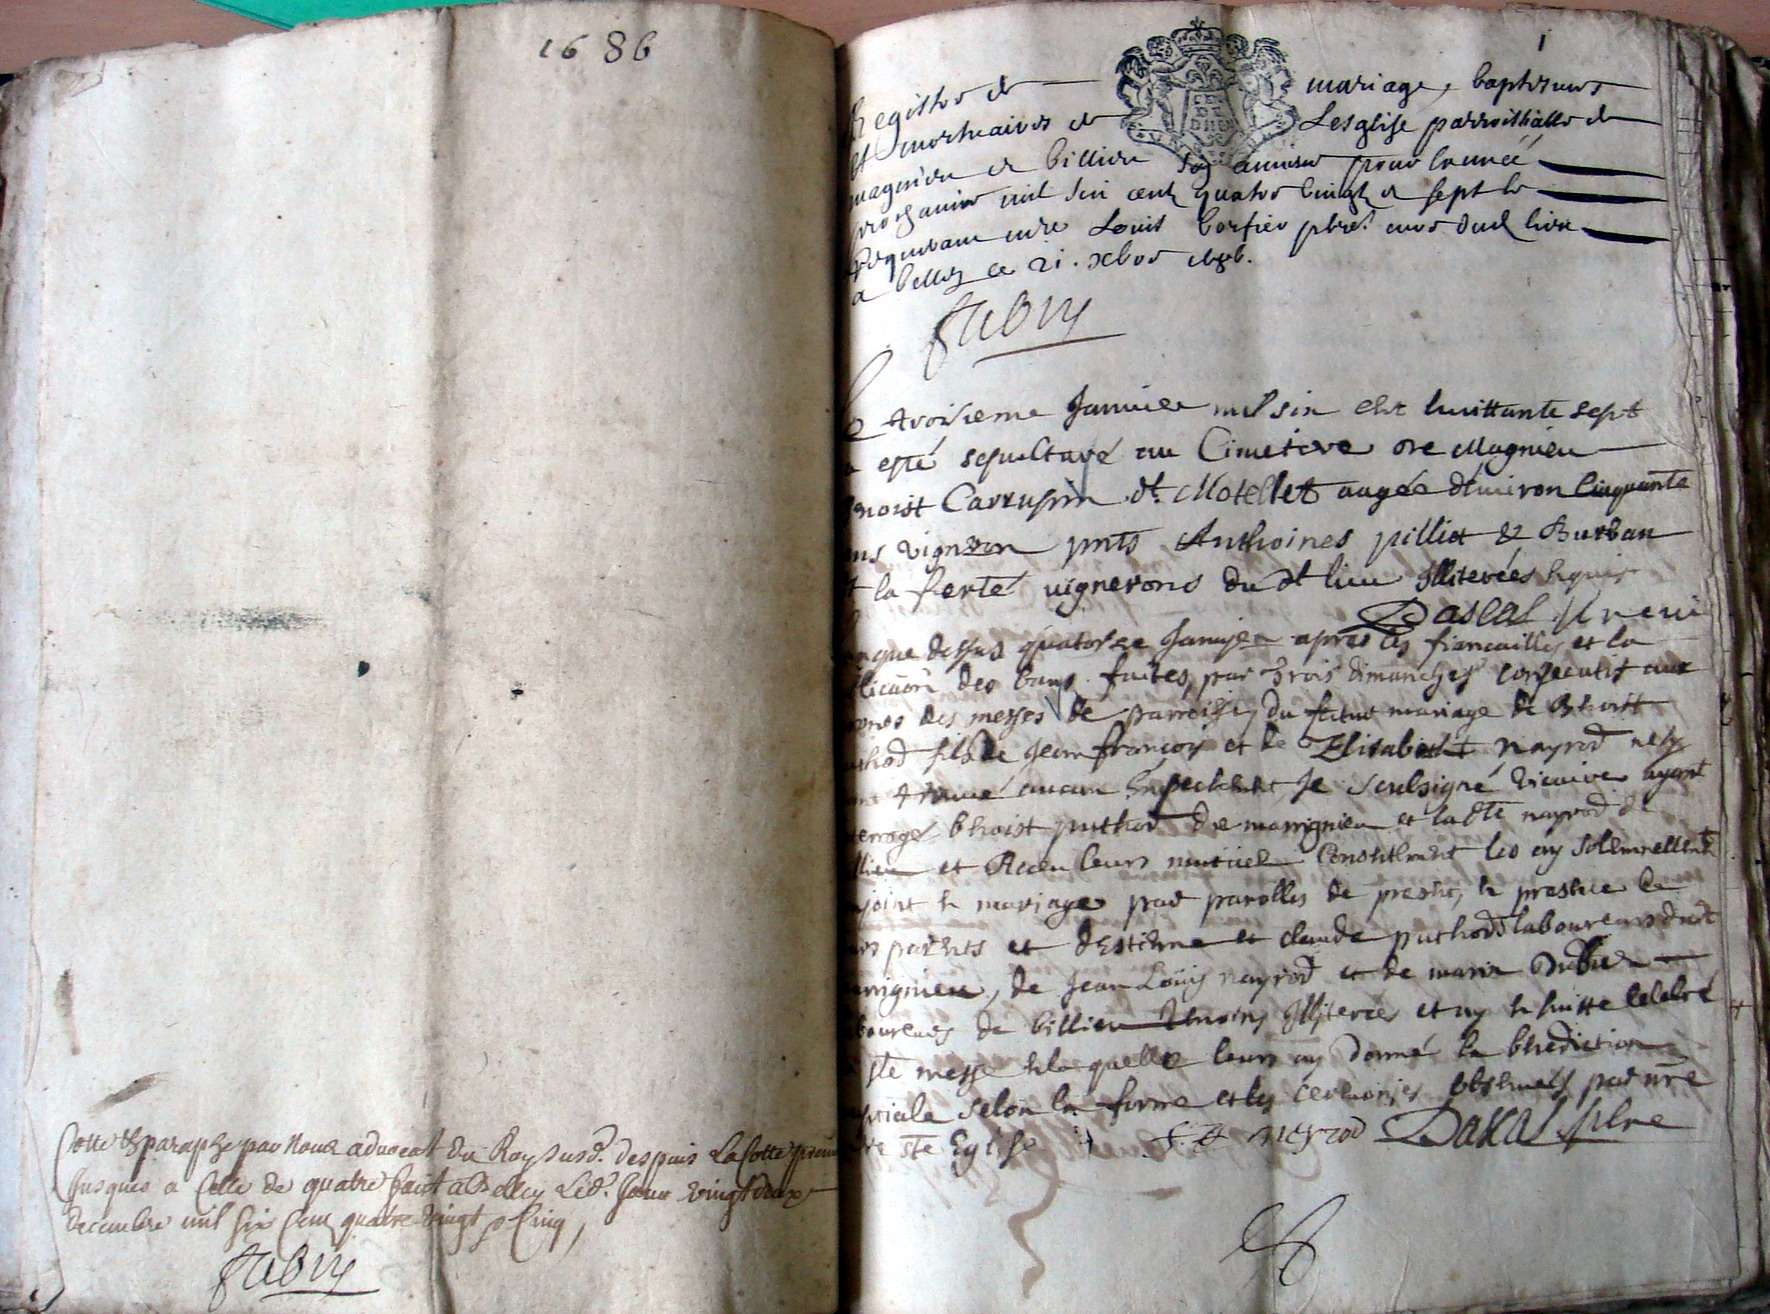 1686
Cotté & paraphé par Nous advocat du Roy susd. despuis La Cotte premiere
Jusques a Celle de quatre fait a Belley Led. Jour vingt deux
decembre mil six Cent quatre vingt & Cinq
Fabry
1
Registre de mariage, baptesmes
et mortuaires de Lesglise parroissialle de
magnieu et billieu pour lannée
prochaine mil six cent quatre vingt et sept
Requerant mre Louis ptre. curé dud. lieu
a belley ce 21. xbre 1686.
Fabry
Le troisieme Januier mil six cent huittante sept
a esté sepulturé au Cimetiere de Magnieu
benoist Carrusin dt. Motellet augée denuiron Cinquante
ans vigneron pnts Anthoines pilliot & Burban
la ferté vignerons du dt lieu Illiterées requis
Dascal
an que dessus quatorze Januier apres les fiancailles et la
publicaon des bans faites par trois dimanches consecutif aux
prones des messes de parroisse, du futur mariage de Bhoist
puthod fils de Jean françois et de Elisabeth nayrod nestant
trouué aucun Empechement Je soubsigné vicaire ayant
interrogé bhoist puthod de marignieu et ladte nayrod de
billieu et Receu leurs mutuel Consentement les ay solemnellemt
conjoint en mariage par parolles de present, en presence de
leurs parents et destienne et claude puthods laboureurs dudt
marignieu, de Jean Louis nayrod et de marin
laboureurs de billieu temoins Illiterées et ay en suitte celebré
la ste messe en laquelle leurs ay donné la bhediction
nuptiale selon la forme et les ceremonies obseruées par nre
mere ste Eglise nerod Dascal ptre